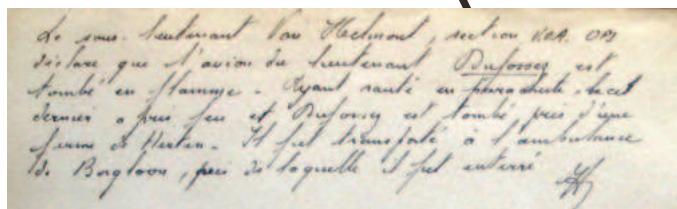 Le sous-lieutenant Van Helmont, section V.O.A. OPS
déclare que l'avion du lieutenant Dufossez est
tombé en flamme - Ayant sauté en parachute,
dernier a pris feu et Dufossez est tombé près d'une
ferme de Herten - Il fut transporté à l'ambulance
de Borgloon, près de laquelle il fut enterré